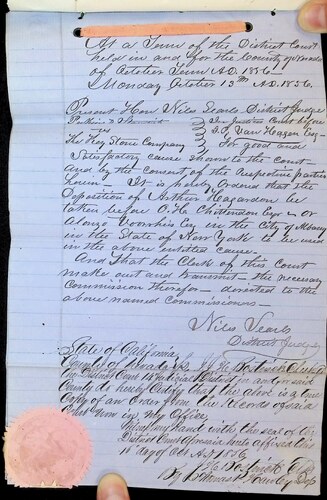 At a Term of the District Court
held in and for the County of Nevada
of October Term A.D. 1856 –
Monday October 13th A.D. 1856.
Present Hon Niles Searls District Judge
In Justices Court before
vs
The Key Stone Company
For good and
Satisfactory cause shown to the Court
and by the consent of the respective parties
herein – It is hereby Ordered that the
Deposition of Arthur Hagardon be
taken before O. H. Chittendon Esqr – Or
Alonzo Voorhis Esq in the City of Albany
in the State of New York to be used
in the above entitled cause
And That the Clerk of this Court
make out and transmit – the necessary
Commission therefor – directed to the
above named Commissioners –
Niles Searls
District Judge
State of California
County of Nevada
District Court 14 Judicial District in and for said
County do hereby Certify that the above is a true
Copy of an Order from the Records of said
Court now in my Office
Witness my hand with the seal of the
District Court aforesaid hereto affixed this
Oct A.D. 1856
Clk
By